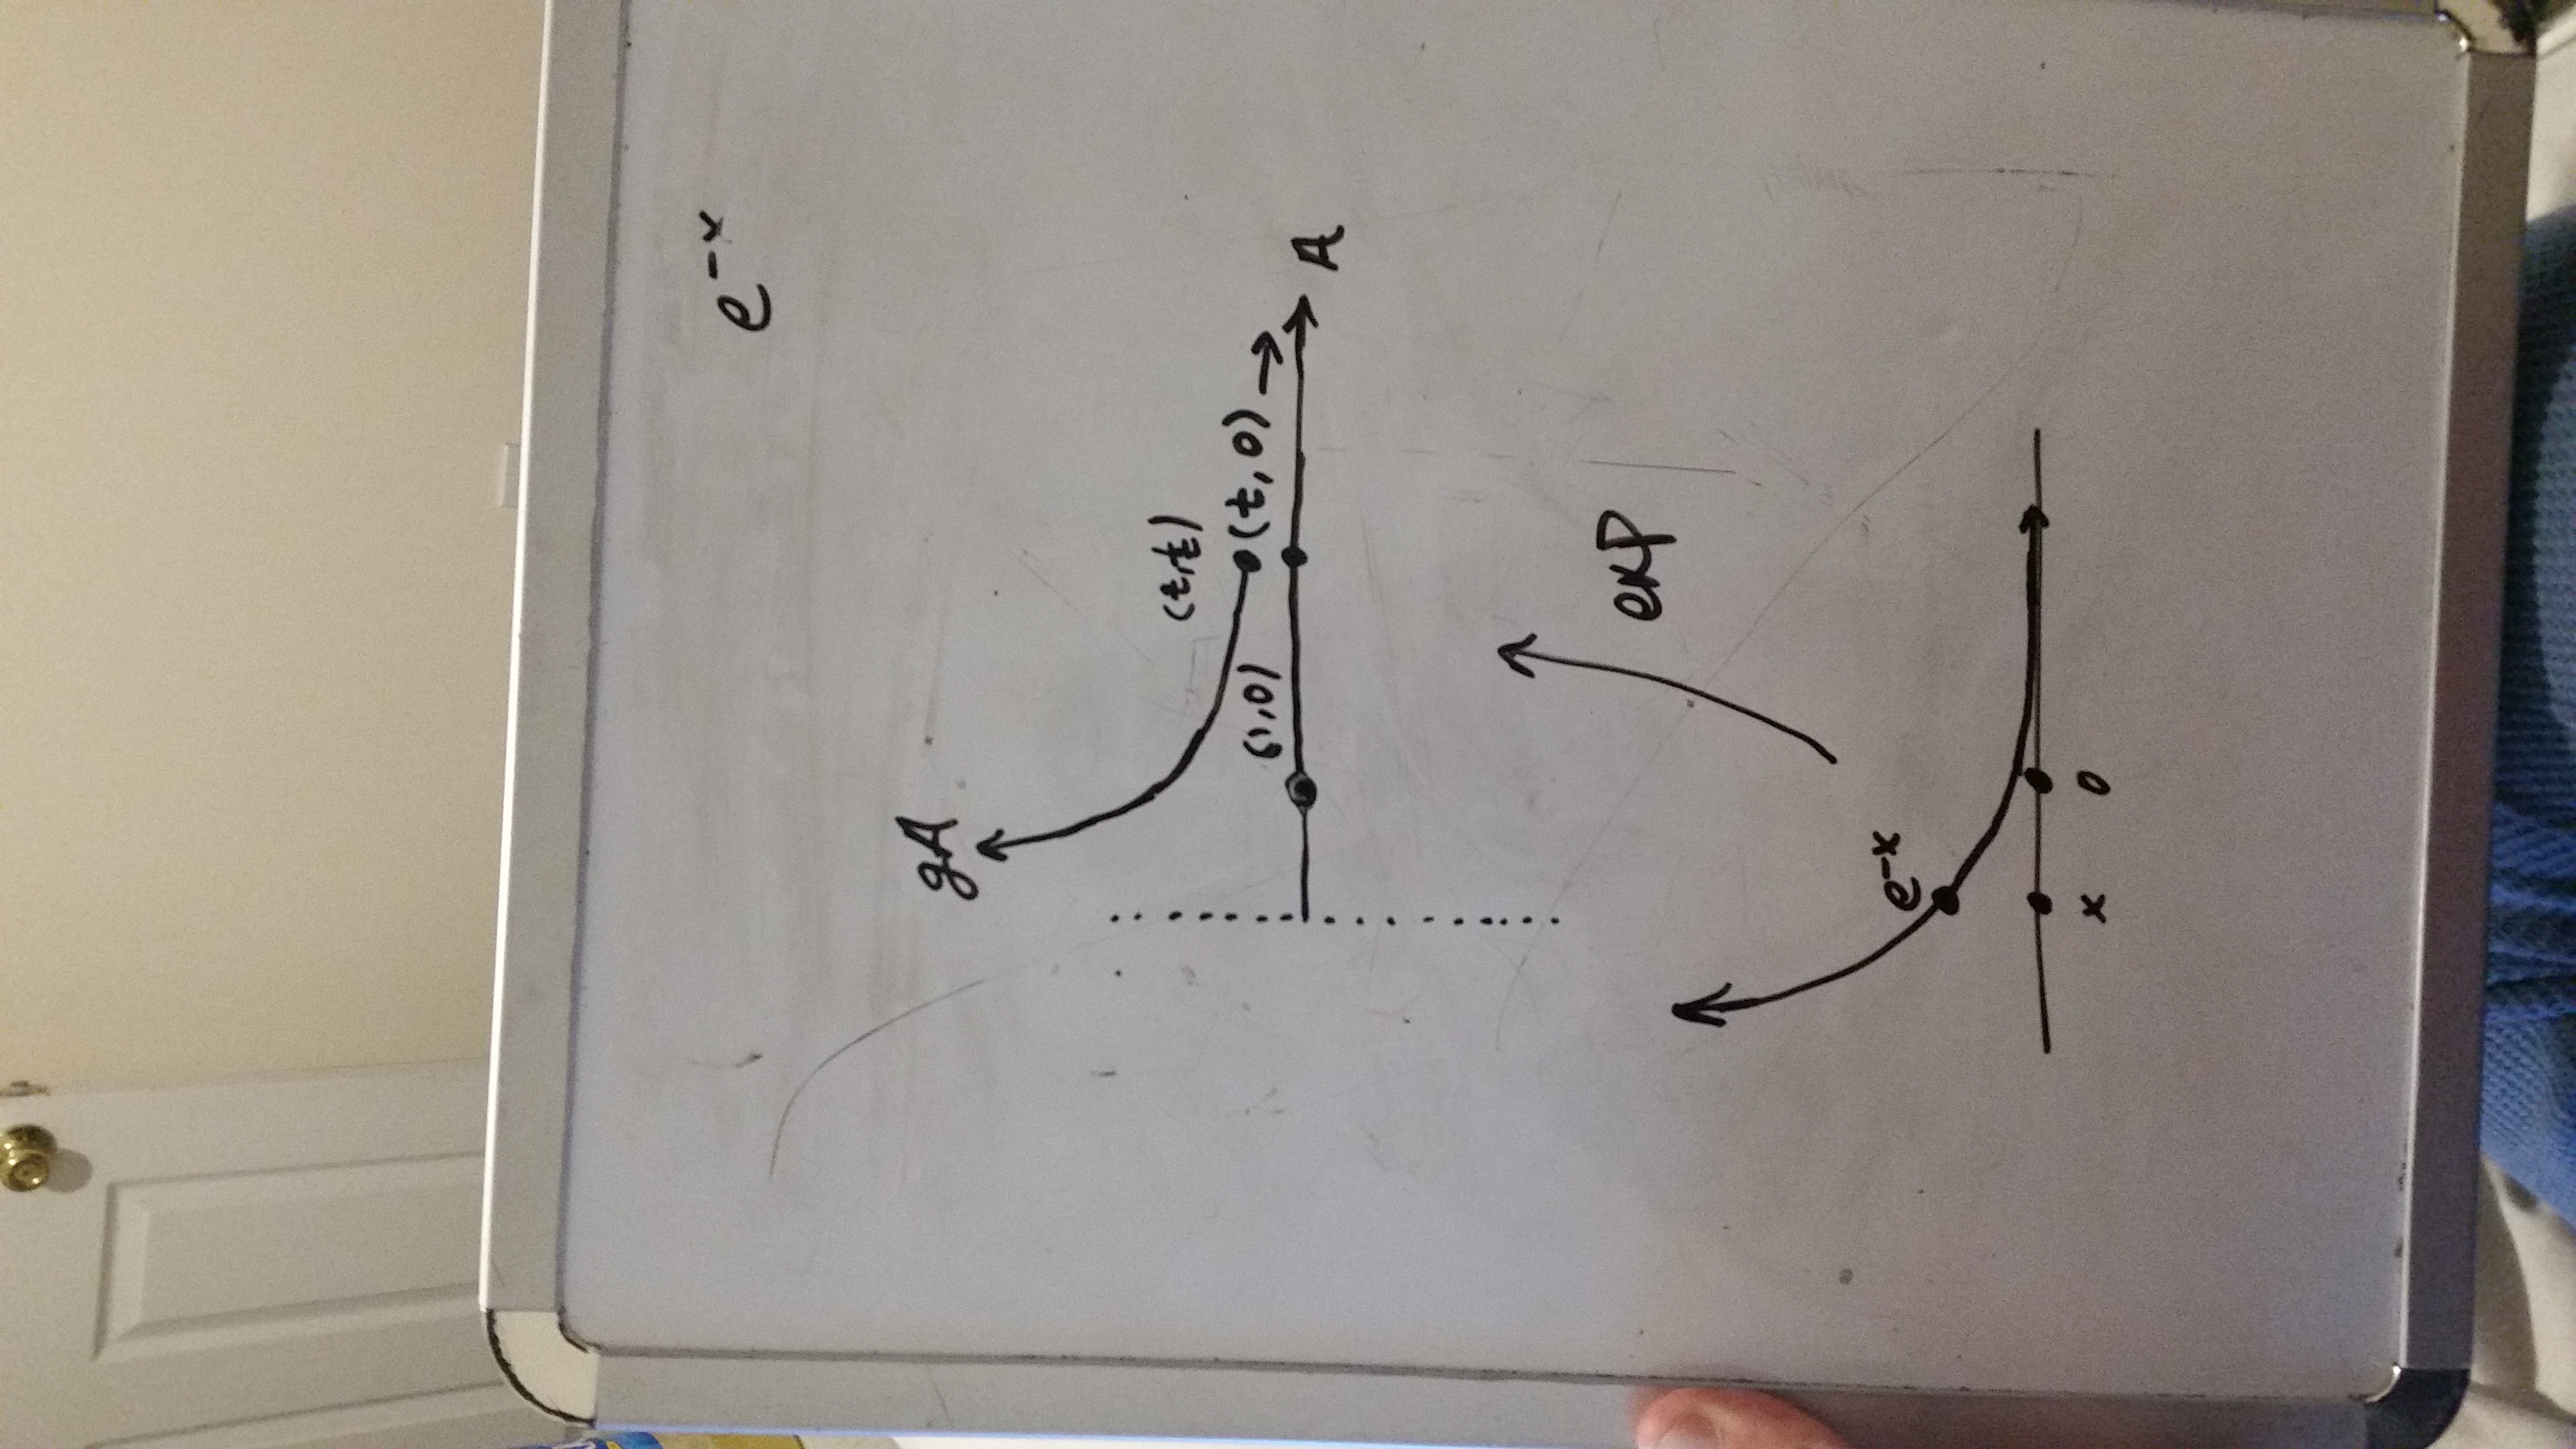 e⁻ˣ
gA
(t,t)
(1,0)
(t,0) →
A
exp
e⁻ˣ
x
0